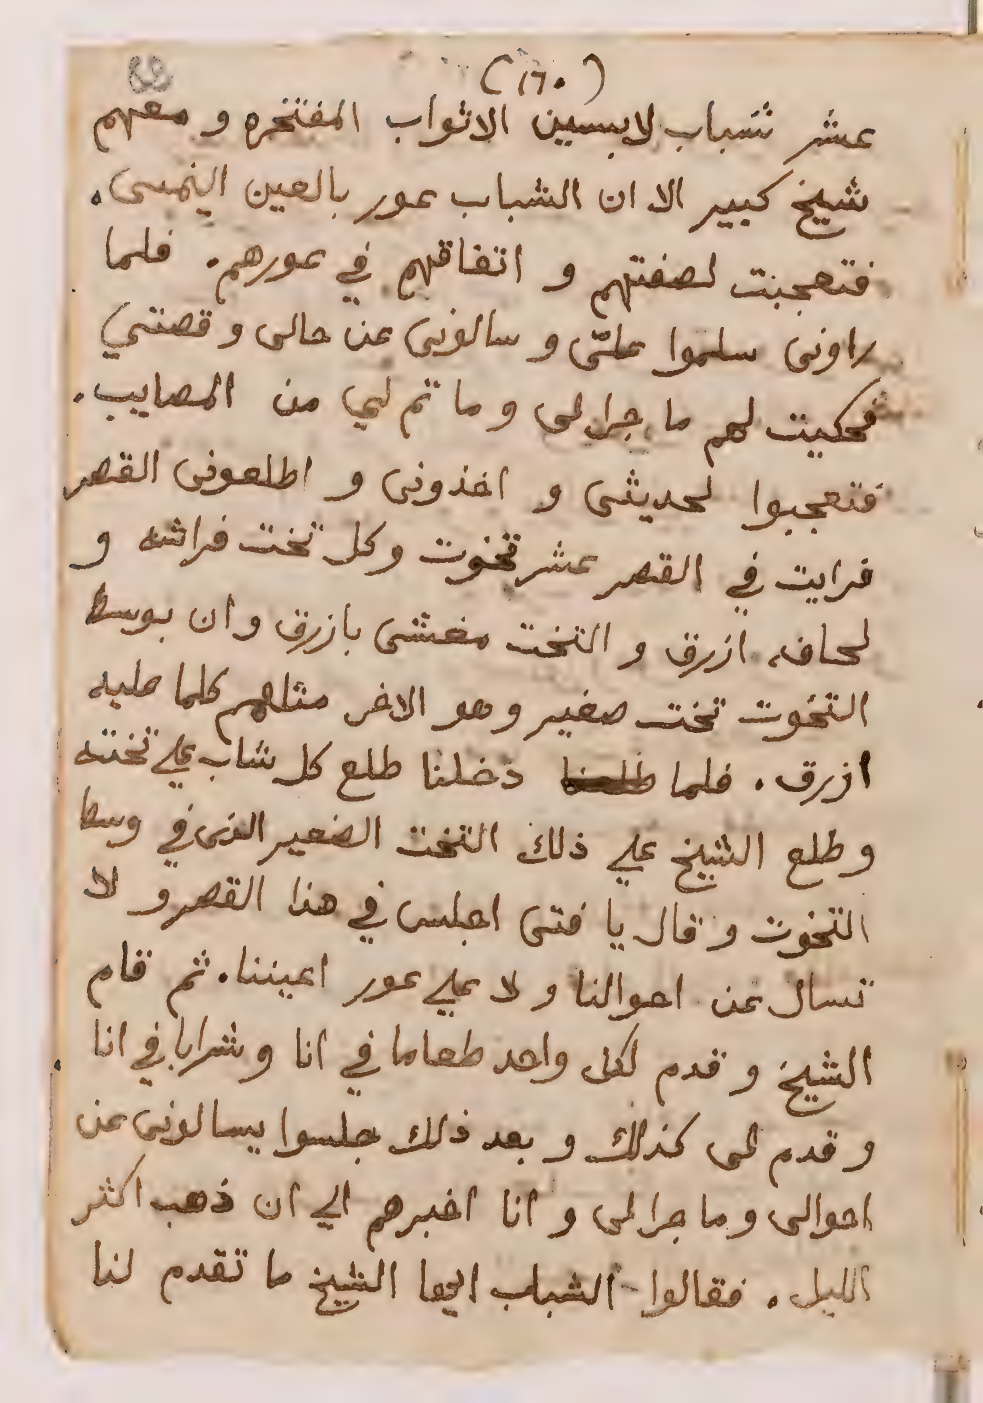 (١٦٠)
عشر شباب لابسين الاثواب المفتخره و معهم
شيخ كبير الا ان الشباب عور بالعين اليمنى.
فتعجبت لصفتهم و اتفاقهم في عورهم. فلما
راونى سلموا عليّ و سالونى عن حالى و قصتي
فحكيت لهم ما جرا لى و ما تم لي من المصايب.
فتعجبوا لحديثى و اخذونى و اطلعونى القصر
فرايت في القصر عشر تخوت وكل تخت فراشه و
لحافه ازرق و التخت مغشى بازرق و ان بوسط
التخوت تخت صغير و هو الاخر مثلهم كلما عليه
ازرق. فلما دخلنا طلع كل شاب على تخته
و طلع الشيخ علي ذلك التخت الصغير الذى في وسط
التخوت و قال يا فتى اجلس في هذا القصر و لا
تسال عن احوالنا و لا علي عور اعيننا. ثم قام
الشيخ و قدم لكل واحد طعاما في انا و شرابا في انا
و قدم لى كذلك و بعد ذلك جلسوا يسالونى عن
احوالى و ما جرا لى و انا اخبرهم الي ان ذهب اكثر
الليل. فقالوا الشباب ايها الشيخ ما تقدم لنا